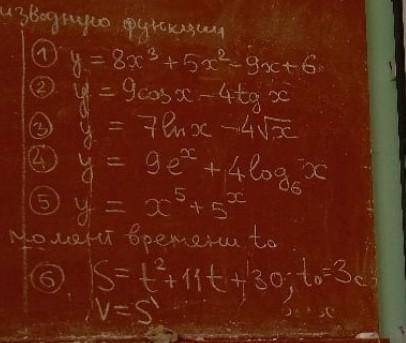 изводную функции
① y = 8x³ + 5x² - 9x + 6
② y = 9cosx - 4tg x
③ y = 7lnx - 4√x
④ y = 9eˣ + 4log₆ x
⑤ y = x⁵ + 5ˣ
момент времени t₀
⑥ S = t² + 11t + 30; t₀ = 3c
V = S'